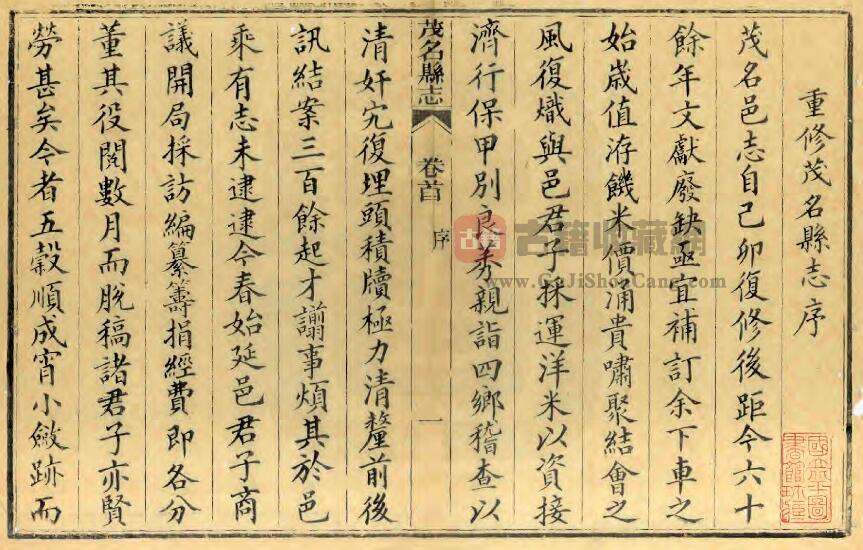 重修茂名縣志序
茂名邑志自己卯復修後距今六十
餘年文獻廢缺亟宜補訂余下車之
始歲值洊饑米價涌貴嘯聚結會之
風復熾與邑君子採運洋米以資接
濟行保甲別良莠親詣四鄉稽查以
茂名縣志
卷首
序
一
清奸宄復埋頭積牘極力清釐前後
訊結案三百餘起才譾事煩其於邑
乘有志未逮逮今春始延邑君子商
議開局採訪編纂籌捐經費即各分
董其役閱數月而脫稿諸君子亦賢
勞甚矣今者五穀順成宵小斂跡而
古籍
古籍收藏網
www.GuJiShouCang.com